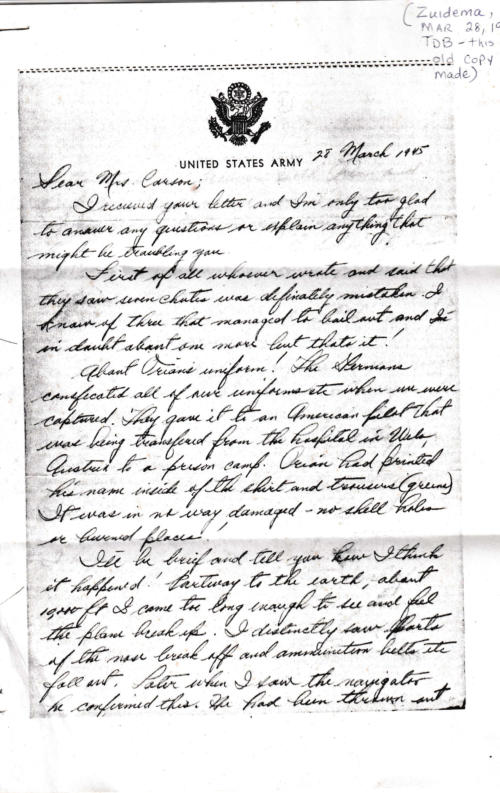 (Zuidema,
MAR 28, 19
TDB - this
old copy
made)
UNITED STATES ARMY
28 March 1945
Dear Mrs Carson;
I received your letter and I'm only too glad
to answer any questions or explain anything that
might be troubling you.
First of all whoever wrote and said that
they saw seven chutes was definately mistaken. I
know of three that managed to bail out and I'm
in doubt about one more but thats it!
About Orian's uniform! The Germans
consficated all of our uniforms etc when we were
captured. They gave it to an American pilot that
was being transfered from the hospital in Wels,
Austria to a prison camp. Orian had printed
his name inside of the shirt and trousers (greens)
It was in no way damaged - no shell holes
or burned places!
I'll be brief and tell you how I think
it happened! Partway to the earth, about
10,000 ft I came too long enough to see and feel
the plane break up. I distinctly saw parts
of the nose break off and ammunition belts etc
fall out. Later when I saw the navigator
he confirmed this. He had been thrown out